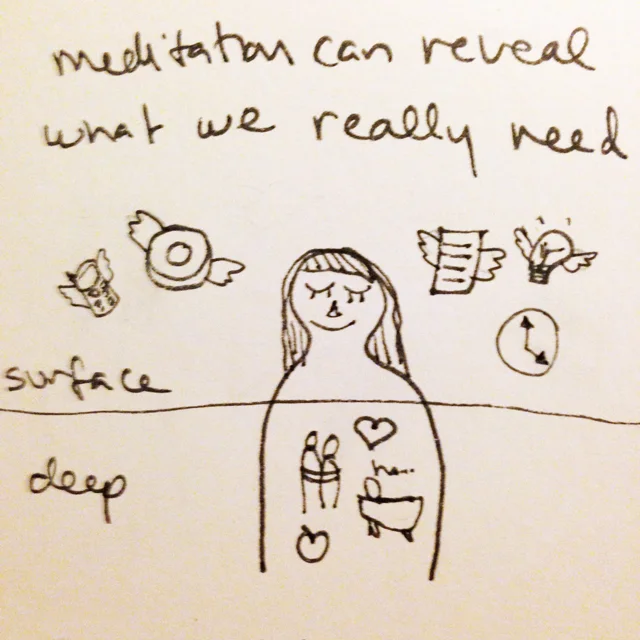 meditation can reveal
what we really need
surface
deep